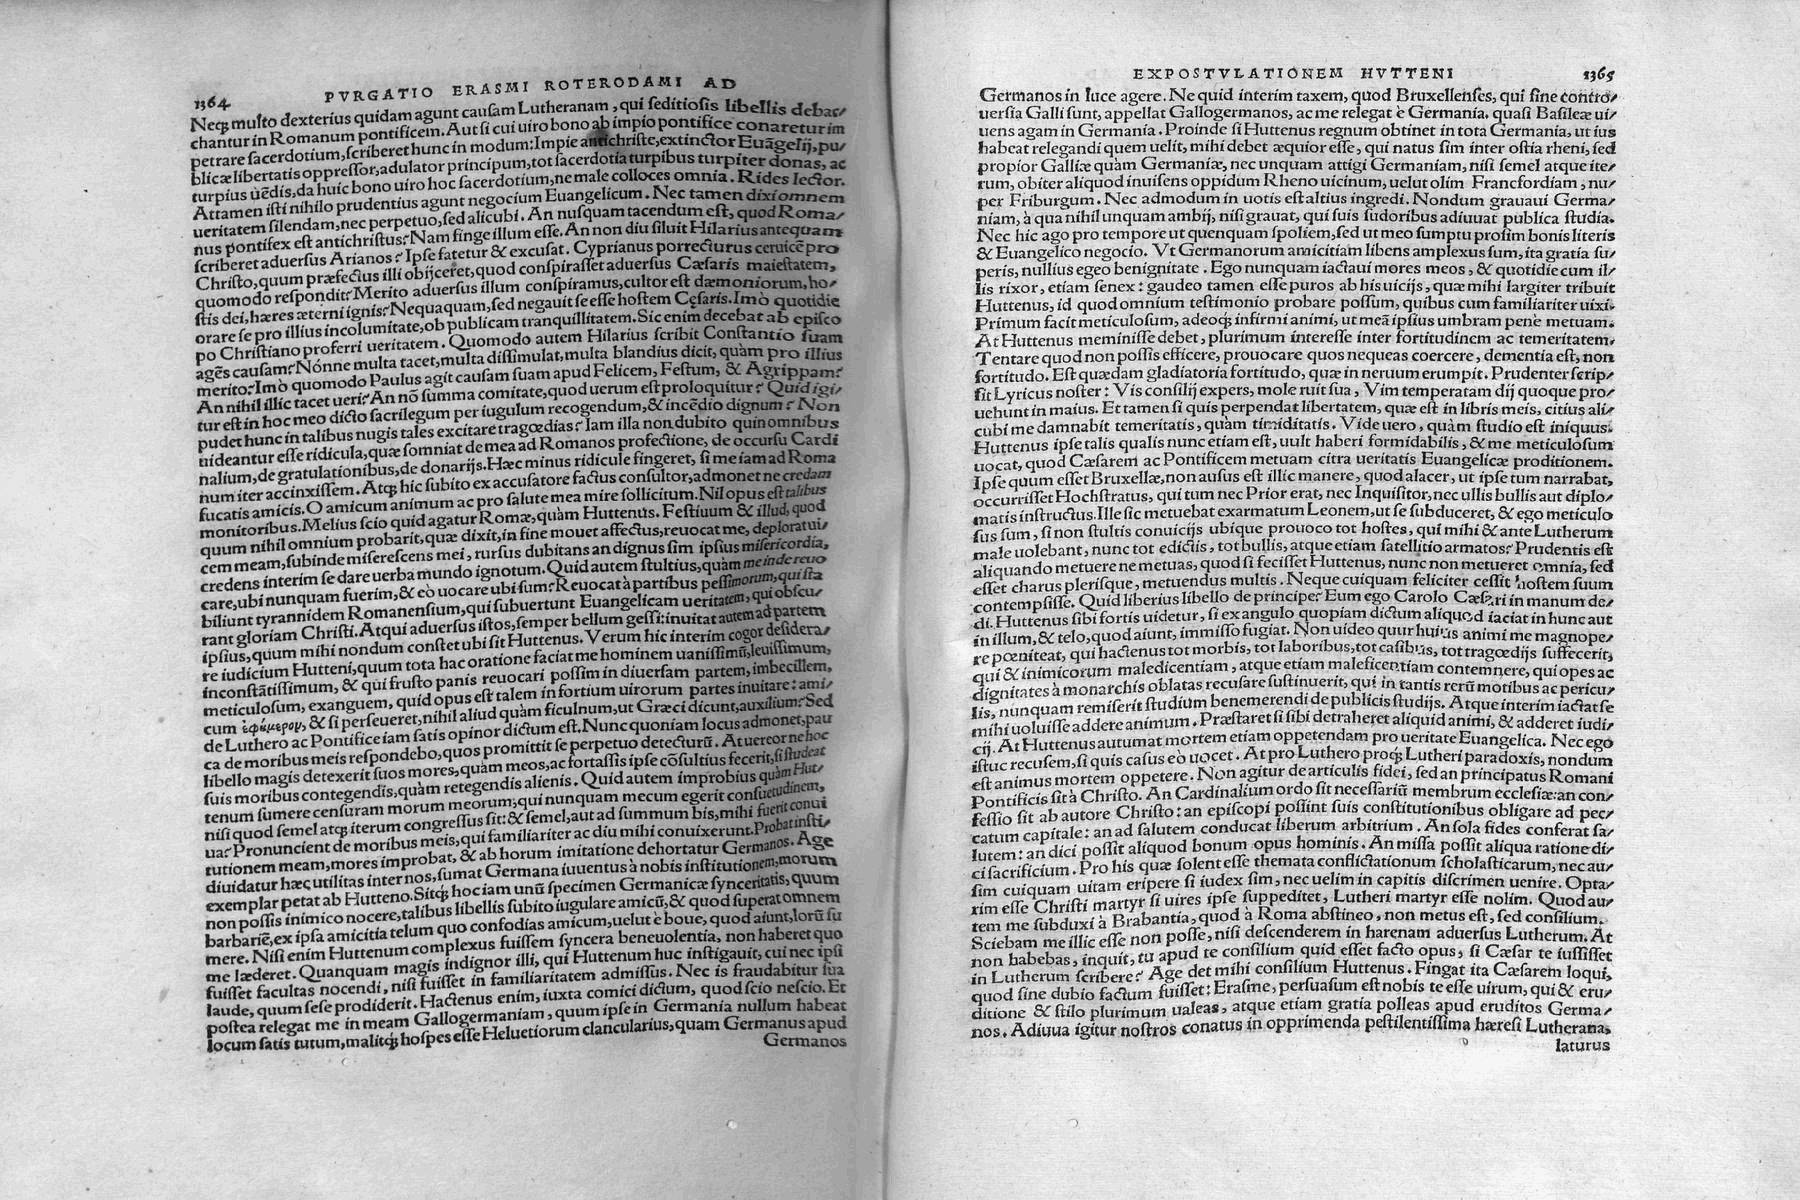 1364
PVRGATIO ERASMI ROTERODAMI AD
Necꝗ multo dexterius quidam agunt cauſam Lutheranam, qui ſeditioſis libellis debac/
chantur in Romanum pontificem. Aut ſi cui uiro bono ab impio pontifice conaretur im
petrare ſacerdotium, ſcriberet hunc in modum: Impie antichriſte, extinctor Euãgelij, pu/
blicæ libertatis oppreſſor, adulator principum, tot ſacerdotia turpibus turpiter donas, ac
turpius uẽdis, da huic bono uiro hoc ſacerdotium, ne male colloces omnia. Rides lector.
Attamen iſti nihilo prudentius agunt negocium Euangelicum. Nec tamen dixi omnem
ueritatem ſilendam, nec perpetuo, ſed alicubi. An nuſquam tacendum eſt, quod Roma/
nus pontifex eſt antichriſtus? Nam finge illum eſſe. An non diu ſiluit Hilarius antequam
ſcriberet aduerſus Arianos? Ipſe fatetur & excuſat. Cyprianus porrecturus ceruicẽ pro
Chriſto, quum præfectus illi obijceret, quod conſpiraſſet aduerſus Cæſaris maieſtatem,
quomodo reſpondit? Merito aduerſus illum conſpiramus, cultor eſt dæmoniorum, ho/
ſtis dei, hæres æterni ignis? Nequaquam, ſed negauit ſe eſſe hoſtem Cęſaris. Imò quotidie
orare ſe pro illius incolumitate, ob publicam tranquillitatem. Sic enim decebat ab epiſco
po Chriſtiano proferri ueritatem. Quomodo autem Hilarius ſcribit Conſtantio ſuam
agẽs cauſam? Nónne multa tacet, multa diſſimulat, multa blandius dicit, quàm pro illius
merito? Imò quomodo Paulus agit cauſam ſuam apud Felicem, Feſtum, & Agrippam?
An nihil illic tacet ueri? An nõ ſumma comitate, quod uerum eſt proloquitur? Quid igi/
tur eſt in hoc meo dicto ſacrilegum per iugulum recogendum, & incẽdio dignum? Non
pudet hunc in talibus nugis tales excitare tragœdias? Iam illa non dubito quin omnibus
uideantur eſſe ridicula, quæ ſomniat de mea ad Romanos profectione, de occurſu Cardi
nalium, de gratulationibus, de donarijs. Hæc minus ridicule fingeret, ſi me iam ad Roma
num iter accinxiſſem. Atcꝗ hic ſubito ex accuſatore factus conſultor, admonet ne credam
fucatis amicis. O amicum animum ac pro ſalute mea mire ſollicitum. Nil opus eſt talibus
monitoribus. Melius ſcio quid agatur Romæ, quàm Huttenus. Feſtiuum & illud, quod
quum nihil omnium probarit, quæ dixit, in fine mouet affectus, reuocat me, deploratui/
cem meam, ſubinde miſereſcens mei, rurſus dubitans an dignus ſim ipſius miſericordia,
credens interim ſe dare uerba mundo ignotum. Quid autem ſtultius, quàm me inde reuo
care, ubi nunquam fuerim, & eò uocare ubi ſum? Reuocat à partibus peſſimorum, qui ſta
biliunt tyrannidem Romanenſium, qui ſubuertunt Euangelicam ueritatem, qui obſcu/
rant gloriam Chriſti. Atqui aduerſus iſtos, ſemper bellum geſſi: inuitat autem ad partem
ipſius, quum mihi nondum conſtet ubi ſit Huttenus. Verum hic interim cogor deſidera/
re iudicium Hutteni, quum tota hac oratione faciat me hominem uaniſſimũ, leuiſſimum,
inconſtãtiſſimum, & qui fruſto panis reuocari poſſim in diuerſam partem, imbecillem,
meticuloſum, exanguem, quid opus eſt talem infortium uirorum partes inuitare: ami/
cum ἐφήμερον, & ſi perſeueret, nihil aliud quàm ficulnum, ut Græci dicunt, auxilium? Sed
de Luthero ac Pontifice iam ſatis opinor dictum eſt. Nunc quoniam locus admonet, pau
ca de moribus meis reſpondebo, quos promittit ſe perpetuo detecturũ. At uereor ne hoc
libello magis detexerit ſuos mores, quàm meos, ac fortaſſis ipſe cõſultius fecerit, ſi ſtudeat
ſuis moribus contegendis, quàm retegendis alienis. Quid autem improbius quàm Hut/
tenum ſumere cenſuram morum meorum, qui nunquam mecum egerit conſuetudinem,
niſi quod ſemel atcꝗ iterum congreſſus ſit: & ſemel, aut ad ſummum bis, mihi fuerit conui
ua? Pronuncient de moribus meis, qui familiariter ac diu mihi conuixerunt. Probat inſti/
tutionem meam, mores improbat, & ab horum imitatione dehortatur Germanos. Age
diuidatur hæc utilitas inter nos, ſumat Germana iuuentus à nobis inſtitutionem, morum
exemplar petat ab Hutteno. Sitcꝗ hoc iam unũ ſpecimen Germanicæ ſynceritatis, quum
non poſſis inimico nocere, talibus libellis ſubito iugulare amicũ, & quod ſuperat omnem
barbariẽ, ex ipſa amicitia telum quo confodias amicum, uelut è boue, quod aiunt, lorũ ſu
mere. Niſi enim Huttenum complexus fuiſſem ſyncera beneuolentia, non haberet quo
me læderet. Quanquam magis indignor illi, qui Huttenum huc inſtigauit, cui nec ipſi
fuiſſet facultas nocendi, niſi fuiſſet in familiaritatem admiſſus. Nec is fraudabitur ſua
laude, quum ſeſe prodiderit. Hactenus enim, iuxta comici dictum, quod ſcio neſcio. Et
poſtea relegat me in meam Gallogermaniam, quum ipſe in Germania nullum habeat
locum ſatis tutum, malitcꝗ hoſpes eſſe Heluetiorum clancularius, quam Germanus apud
Germanos
EXPOSTVLATIONEM HVTTENI
1365
Germanos in luce agere. Ne quid interim taxem, quod Bruxellenſes, qui ſine contro/
uerſia Galli ſunt, appellat Gallogermanos, ac me relegat è Germania, quaſi Baſileæ ui/
uens agam in Germania. Proinde ſi Huttenus regnum obtinet in tota Germania, ut ius
habeat relegandi quem uelit, mihi debet æquior eſſe, qui natus ſim inter oſtia rheni, ſed
propior Galliæ quàm Germaniæ, nec unquam attigi Germaniam, niſi ſemel atque ite/
rum, obiter aliquod inuiſens oppidum Rheno uicinum, uelut olim Francfordiam, nu/
per Friburgum. Nec admodum in uotis eſt altius ingredi. Nondum grauaui Germa/
niam, à qua nihil unquam ambij, niſi grauat, qui ſuis ſudoribus adiuuat publica ſtudia.
Nec hic ago pro tempore ut quenquam ſpoliem, ſed ut meo ſumptu proſim bonis literis
& Euangelico negocio. Vt Germanorum amicitiam libens amplexus ſum, ita gratia ſu/
peris, nullius egeo benignitate. Ego nunquam iactaui mores meos, & quotidie cum il/
lis rixor, etiam ſenex: gaudeo tamen eſſe puros ab his uicijs, quæ mihi largiter tribuit
Huttenus, id quod omnium teſtimonio probare poſſum, quibus cum familiariter uixi.
Primum facit meticuloſum, adeocꝗ infirmi animi, ut meã ipſius umbram penè metuam.
At Huttenus meminiſſe debet, plurimum intereſſe inter fortitudinem ac temeritatem.
Tentare quod non poſſis efficere, prouocare quos nequeas coercere, dementia eſt, non
fortitudo. Eſt quædam gladiatoria fortitudo, quæ in neruum erumpit. Prudenter ſcrip/
ſit Lyricus noſter: Vis conſilij expers, mole ruit ſua, Vim temperatam dij quoque pro/
uehunt in maius. Et tamen ſi quis perpendat libertatem, quæ eſt in libris meis, citius ali/
cubi me damnabit temeritatis, quàm timiditatis. Vide uero, quàm ſtudio eſt iniquus.
Huttenus ipſe talis qualis nunc etiam eſt, uult haberi formidabilis, & me meticuloſum
uocat, quod Cæſarem ac Pontificem metuam citra ueritatis Euangelicæ proditionem.
Ipſe quum eſſet Bruxellæ, non auſus eſt illic manere, quod alacer, ut ipſe tum narrabat,
occurriſſet Hochſtratus, qui tum nec Prior erat, nec Inquiſitor, nec ullis bullis aut diplo/
matis inſtructus. Ille ſic metuebat exarmatum Leonem, ut ſe ſubduceret, & ego meticulo
ſus ſum, ſi non ſtultis conuicijs ubique prouoco tot hoſtes, qui mihi & ante Lutherum
male uolebant, nunc tot edictis, tot bullis, atque etiam ſatellitio armatos? Prudentis eſt
aliquando metuere ne metuas, quod ſi feciſſet Huttenus, nunc non metueret omnia, ſed
eſſet charus pleriſque, metuendus multis. Neque cuiquam feliciter ceſſit hoſtem ſuum
contempſiſſe. Quid liberius libello de principe? Eum ego Carolo Cæſari in manum de/
di. Huttenus ſibi fortis uidetur, ſi ex angulo quopiam dictum aliquod iaciat in hunc aut
in illum, & telo, quod aiunt, immiſſo fugiat. Non uideo quur huius animi me magnope/
re pœniteat, qui hactenus tot morbis, tot laboribus, tot caſibus, tot tragœdijs ſuffecerit,
qui & inimicorum maledicentiam, atque etiam maleficentiam contemnere, qui opes ac
dignitates à monarchis oblatas recuſare ſuſtinuerit, qui in tantis rerũ motibus ac pericu/
lis, nunquam remiſerit ſtudium benemerendi de publicis ſtudijs. Atque interim iactat ſe
mihi uoluiſſe addere animum. Præſtaret ſi ſibi detraheret aliquid animi, & adderet iudi/
cij. At Huttenus autumat mortem etiam oppetendam pro ueritate Euangelica. Nec ego
iſtuc recuſem, ſi quis caſus eò uocet. At pro Luthero procꝗ Lutheri paradoxis, nondum
eſt animus mortem oppetere. Non agitur de articulis fidei, ſed an principatus Romani
Pontificis ſit à Chriſto. An Cardinalium ordo ſit neceſſariũ membrum eccleſiæ: an con/
feſſio ſit ab autore Chriſto: an epiſcopi poſſint ſuis conſtitutionibus obligare ad pec/
catum capitale: an ad ſalutem conducat liberum arbitrium. An ſola fides conferat ſa/
lutem: an dici poſſit aliquod bonum opus hominis. An miſſa poſſit aliqua ratione di/
ci ſacrificium. Pro his quæ ſolent eſſe themata conflictationum ſcholaſticarum, nec au/
ſim cuiquam uitam eripere ſi iudex ſim, nec uelim in capitis diſcrimen uenire. Opta/
rim eſſe Chriſti martyr ſi uires ipſe ſuppeditet, Lutheri martyr eſſe nolim. Quod au/
tem me ſubduxi à Brabantia, quod à Roma abſtineo, non metus eſt, ſed conſilium.
Sciebam me illic eſſe non poſſe, niſi deſcenderem in harenam aduerſus Lutherum. At
non habebas, inquit, tu apud te conſilium quid eſſet facto opus, ſi Cæſar te iuſſiſſet
in Lutherum ſcribere? Age det mihi conſilium Huttenus. Fingat ita Cæſarem loqui,
quod ſine dubio factum fuiſſet: Eraſme, perſuaſum eſt nobis te eſſe uirum, qui & eru/
ditione & ſtilo plurimum ualeas, atque etiam gratia polleas apud eruditos Germa/
nos. Adiuua igitur noſtros conatus in opprimenda peſtilentiſſima hæreſi Lutherana,
laturus